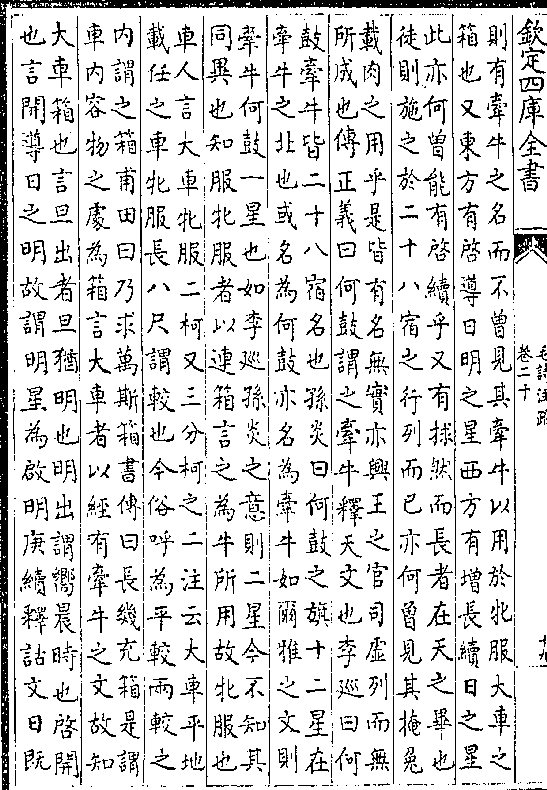 欽定四庫全書
毛詩注疏
卷二十
十九
則有牽牛之名而不曾見其牽牛以用於牝服大車之
箱也又東方有啓導日明之星西方有増長續日之星
此亦何曾能有啓續乎又有捄然而長者在天之畢也
徒則施之於二十八宿之行列而已亦何曾見其掩兔
載肉之用乎是皆有名無實亦興王之官司虛列而無
所成也傳正義曰何鼓謂之牽牛釋天文也李廵曰何
鼓牽牛皆二十八宿名也孫炎曰何鼓之旗十二星在
牽牛之北也或名為何鼓亦名為牽牛如爾雅之文則
牽牛何鼓一星也如李廵孫炎之意則二星今不知其
同異也知服牝服者以連箱言之為牛所用故牝服也
車人言大車牝服二柯又三分柯之二注云大車平地
載任之車牝服長八尺謂較也今俗呼為平較兩較之
内謂之箱甫田曰乃求萬斯箱書傳曰長幾充箱是謂
車内容物之處為箱言大車者以經有牽牛之文故知
大車箱也言旦出者旦猶明也明出謂嚮晨時也啓開
也言開導日之明故謂明星為啟明庚續釋詁文日既